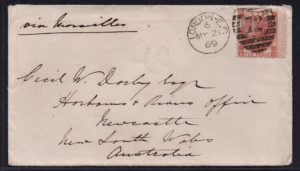 via Marseilles
LONDON
6
MY 21
69
Cecil W. Darley Esqr
Harbours & Rivers Office
Newcastle
New South Wales
Australia